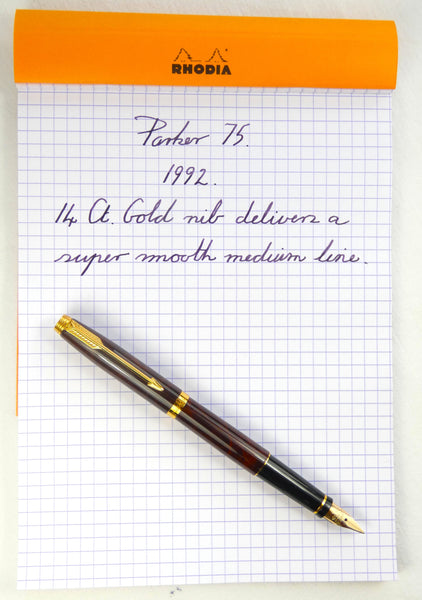 RHODIA
Parker 75.
1992.
14 Ct. Gold nib delivers a
super smooth medium line.